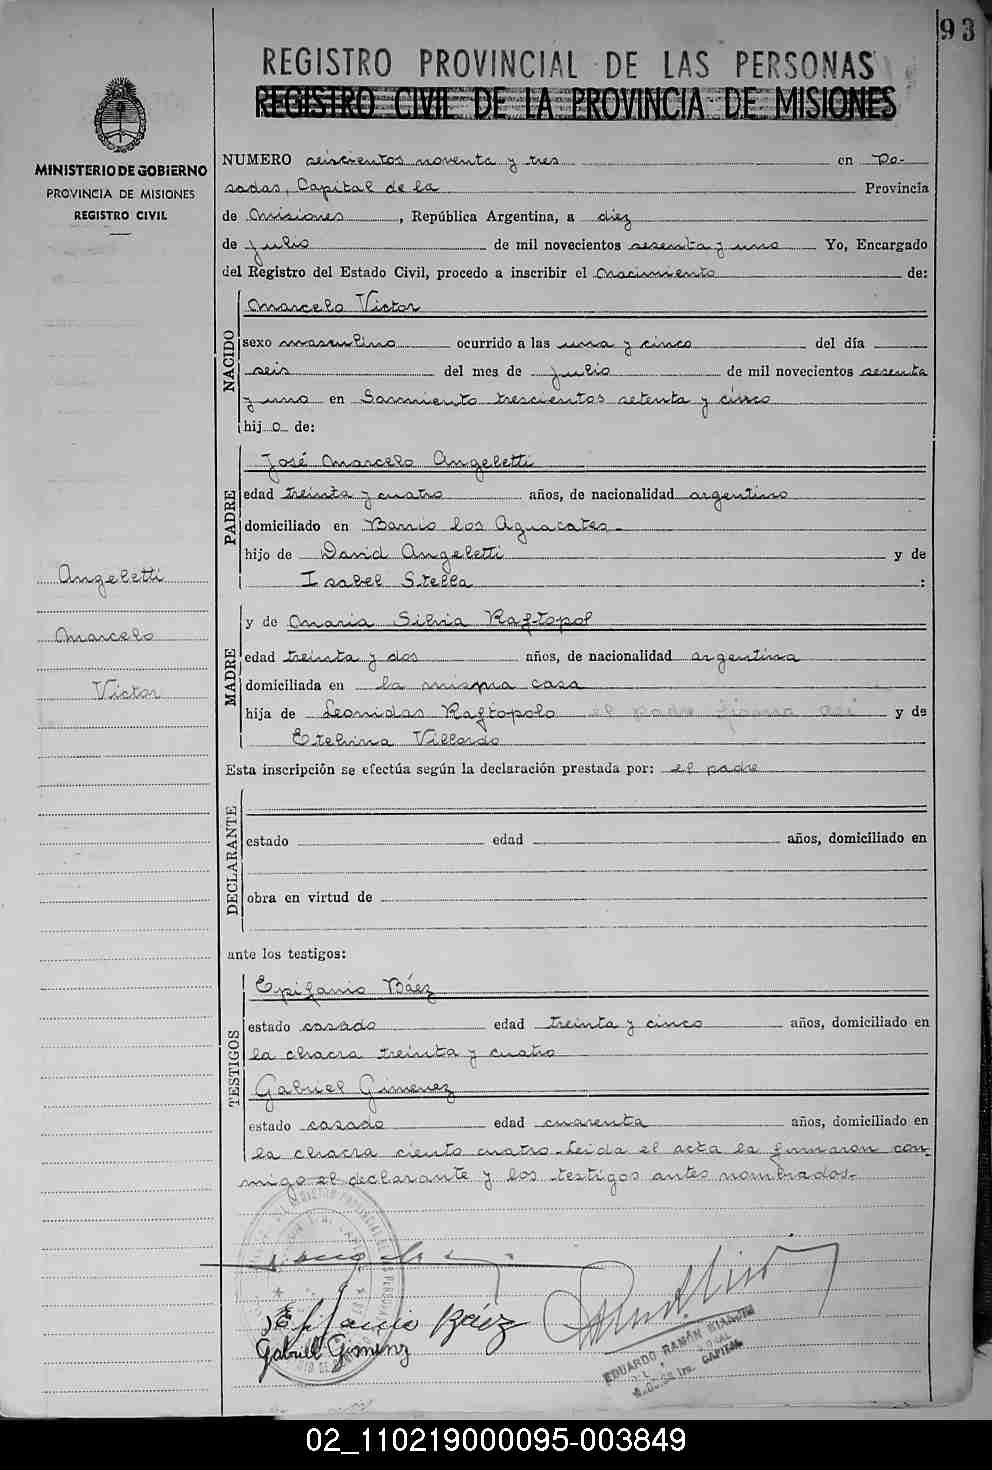 93
REGISTRO PROVINCIAL DE LAS PERSONAS
REGISTRO CIVIL DE LA PROVINCIA DE MISIONES
MINISTERIO DE GOBIERNO
PROVINCIA DE MISIONES
REGISTRO CIVIL
NUMERO seiscientos noventa y tres en Po-
sadas, Capital de la Provincia
de Misiones, República Argentina, a diez
de julio de mil novecientos sesenta y uno Yo, Encargado
del Registro del Estado Civil, procedo a inscribir el nacimiento de:
NACIDO
Marcelo Victor
sexo masculino ocurrido a las una y cinco del día
seis del mes de julio de mil novecientos sesenta
y uno en Sarmiento trescientos setenta y cinco
hijo de:
PADRE
José Marcelo Angeletti
edad treinta y cuatro años, de nacionalidad argentino
domiciliado en Barrio los Aguacates-
hijo de David Angeletti y de
Isabel Stella :
Angeletti
Marcelo
Victor
MADRE
y de Maria Silvia Raftopol
edad treinta y dos años, de nacionalidad argentina
domiciliada en la misma casa
hija de Leonidas Raftopolo el padre firma así y de
Etelvina Villordo
Esta inscripción se efectúa según la declaración prestada por: el padre
DECLARANTE
estado edad años, domiciliado en
obra en virtud de
ante los testigos:
TESTIGOS
Epifanio Báez
estado casado edad treinta y cinco años, domiciliado en
la chacra treinta y cuatro
Gabriel Gimenez
estado casado edad cuarenta años, domiciliado en
la chacra ciento cuatro-Leida el acta la firmaron con-
migo el declarante y los testigos antes nombrados.-
Epifanio Báez
Gabriel Gimenz
EDUARDO RAMÓN
CAPITAL
02_110219000095-003849